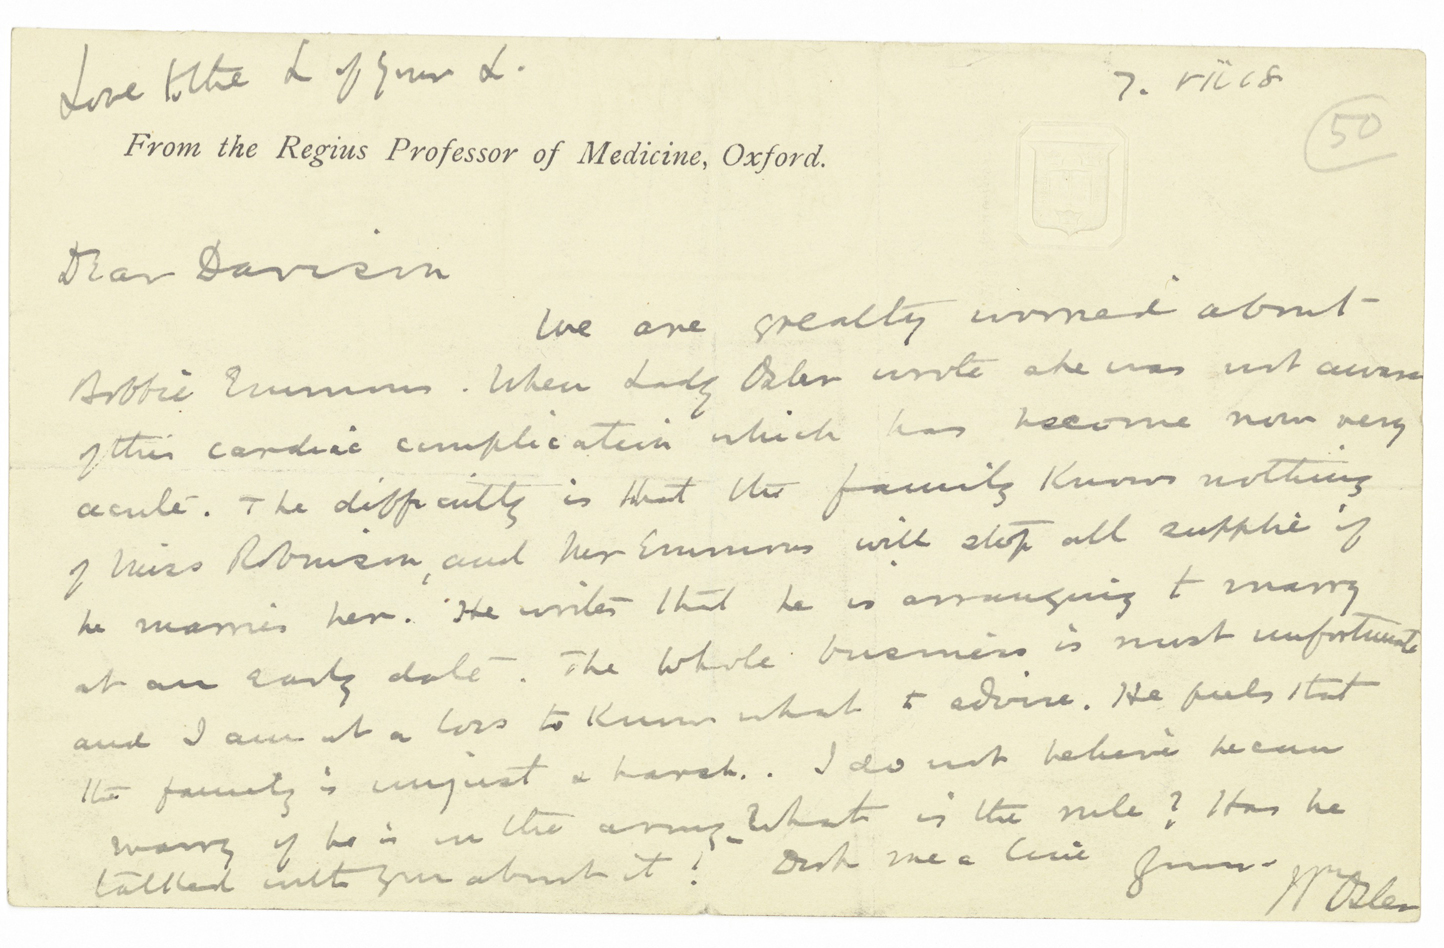 Love to the L of your L.
7. vii 18
50
From the Regius Professor of Medicine, Oxford.
Dear Davison
We are greatly worried about
Bobbie Emmons. When Lady Osler wrote she was not aware
of this cardiac complication which has become now very
acute. The difficulty is that the family knows nothing
of Miss Robinson, and Mr Emmons will stop all supplie if
he marries her. He writes that he is arranging to marry
at an early date. The whole business is most unfortunate
and I am at a loss to know what to advise. He feels that
the family is unjust & harsh.. I do not believe he can
marry if he is in the army. What is the rule? Has he
talked with you about it? Dish me a line Yours
Wm Osler